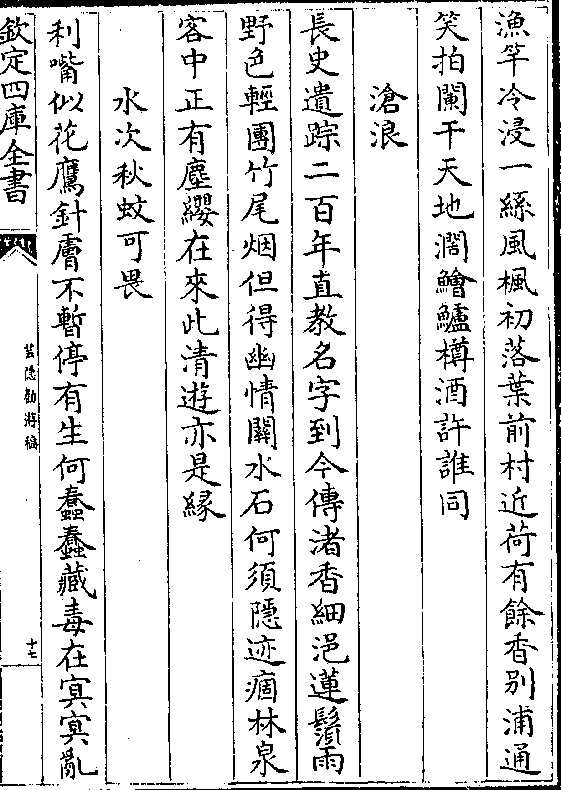 漁竿冷浸一絲風楓初落葉前村近荷有餘香別浦通
笑拍闌干天地濶鱠鱸樽酒許誰同
滄浪
長史遺踪二百年直教名字到今傳渚香細浥蓮鬚雨
野色輕團竹尾烟但得幽情闗水石何須隱迹痼林泉
客中正有塵纓在來此清遊亦是縁
水次秋蚊可畏
利嘴似花鷹針膚不暫停有生何蠢蠢藏毒在冥冥亂
欽定四庫全書
芸隠勌游稿
十七